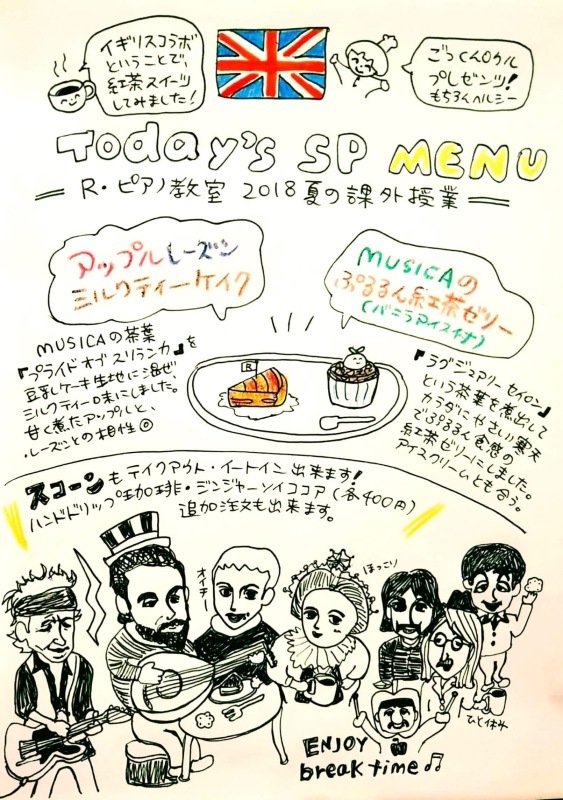 イギリスコラボ
ということで、
紅茶スイーツ
してみました!
ごっくんロカル
プレゼンツ!
もちろんヘルシー
Today's SP MENU
R・ピアノ教室 2018夏の課外授業
アップルレーズン
ミルクティーケイク
MUSICAの
ぷるるん紅茶ゼリー
(バニラアイス付)
MUSICAの茶葉
『プライドオブスリランカ』を
豆乳ケーキ生地に混ぜ
ミルクティー味にしました。
甘く煮たアップルと、
レーズンとの相性◎
R
『ラグジュアリーセイロン』
という茶葉を煮出して
カラダにやさしい寒天
でぷるるん食感の
紅茶ゼリーにしました。
アイスクリームとも合う。
スコーンもテイクアウト・イートイン出来ます!
ハンドドリップ珈琲・ジンジャーソイココア(各400円)
追加注文も出来ます。
オイチー
ほっこり
ひと休み
ENJOY
break time♫